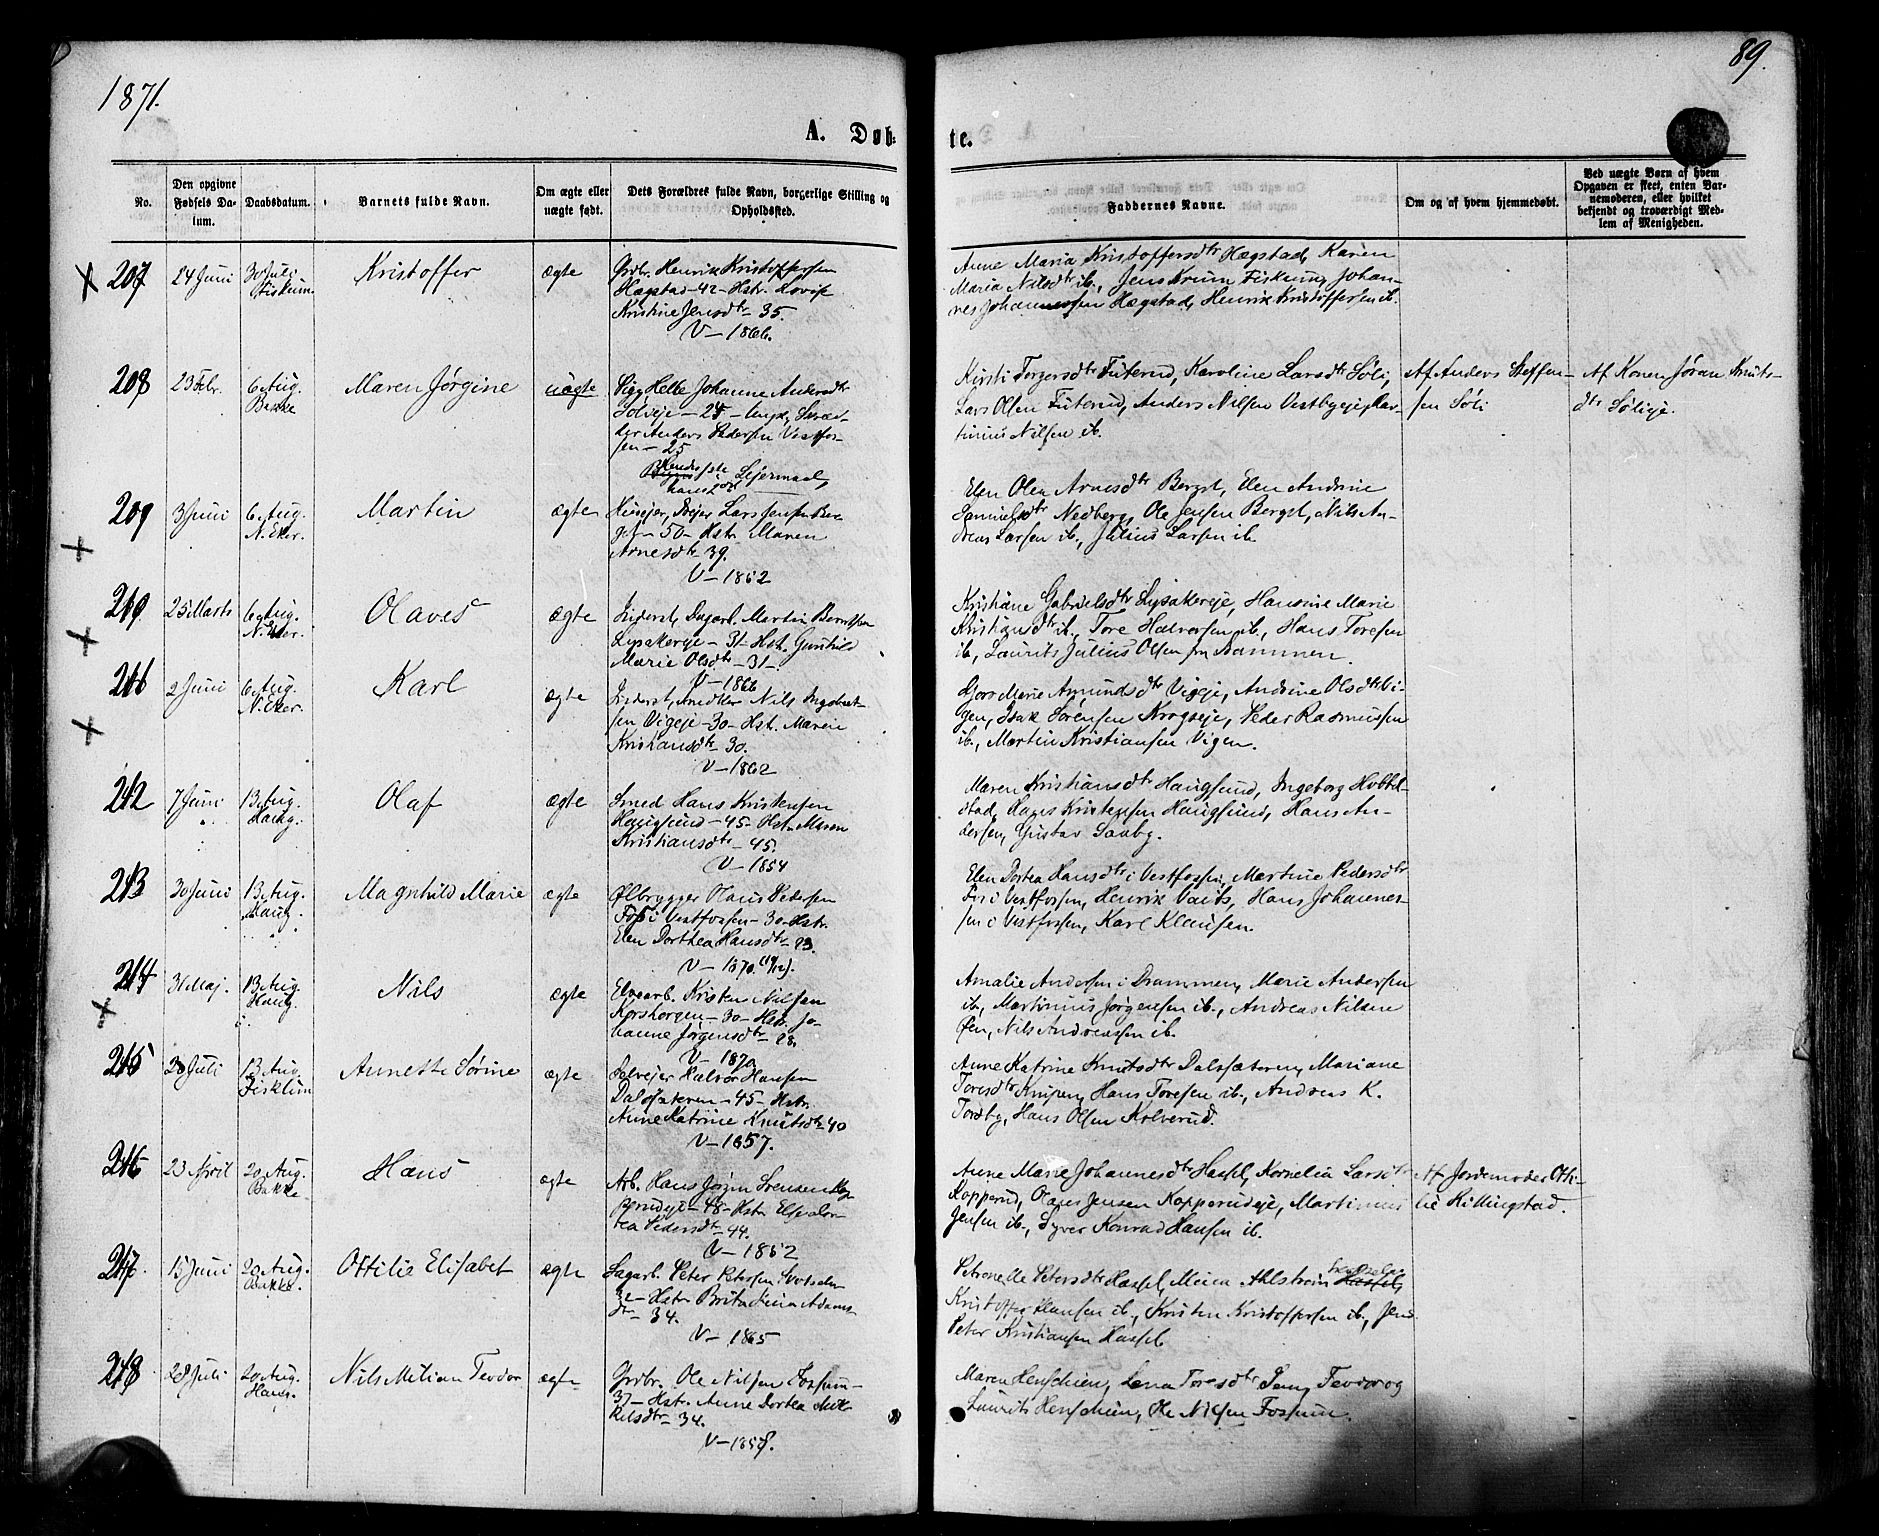 1871.
89.
A. Døb-
te.
No.
Den opgivne
Fødsels Da-
tum.
Daabsdatum.
Barnets fulde Navn.
Om ægte eller
uægte født.
Dets Forældres fulde Navn, borgerlige Stilling og
Opholdssted.
Faddernes Navne.
Om og af hvem hjemmedøbt.
Ved uægte Børn af hvem
Opgaven er skeet, enten Bar-
nemoderen, eller hvilket
bekjendt og troværdigt Med-
lem af Menigheden.
207
24 Juni
30 Juli
Fiskum
Kristoffer
ægte
Grdbr. Henrik Kristoffersen
Hægstad - 42 - Hstr. Lovise
Kristine Jensdtr - 35.
V - 1866.
Anne Maria Kristoffersdtr Hægstad, Karen
Maria Nilsdtr ib., Jens Krum Fiskum, Johan-
nes Johannessen Hægstad, Henrik Kristoffersen ib.
208
23 Febr.
6 Aug.
Bakke
Maren Jørgine
uægte
Pige Helle Johanne Andersdtr
Sølieje - 24 - Ungk. Skræd-
der Anders Pedersen Vestfos-
sen - 25
Lejermaal
Kirsti Torgersdtr Futerud, Karoline Larsdtr Søli,
Lars Olsen Futerud, Anders Nilsen Vestbyeje, Mar-
tinius Nilsen ib.
Af Anders Steffen-
sen Søli
Af Konen Jøran Knuts-
dtr Sølieje.
209
3 Juni
6 Aug.
N. Eker.
Martin
ægte
Husejer, Drejer Lars Jensen Ber-
get - 50 - Hstr. Maren
Arnesdtr - 39.
V - 1862
Elen Olea Arnesdtr Berget, Elen Andrine
Samuelsdtr Nedberg, Ole Jensen Berget, Nils An-
dreas Larsen ib., Julius Larsen ib.
210
25 Marts
6 Aug.
N. Eker.
Olaves
ægte
Inderst, Dagarb. Martin Berntsen
Lysakereje - 31 - Hst. Gunhild
Marie Olsdtr - 31 -
V - 1866
Kristiane Gabrielsdtr Lysakereje, Hansine Marie
Kristiansdtr ib., Tore Halvorsen ib., Hans Toresen
ib., Laurits Julius Olsen fra Drammen.
211
2 Juni
6 Aug.
N. Eker.
Karl
ægte
Inderst, Snedker Nils Ingebret-
sen Vigeje - 30 - Hst. Maren
Kristiansdtr - 30.
V - 1862
Gjors Marie Amundsdtr Vigeje, Andrine Olsdtr Vi-
gen, Isak Sørensen Krogseje, Peder Rasmussen
ib., Martin Kristiansen Vigen.
212
7 Juni
13 Aug.
Haug.
Olaf
ægte
Smed Hans Kristensen
Haugsund - 45 - Hst. Maren
Kristiansdtr - 45.
V - 1854
Maren Kristiansdtr Haugsund, Ingeborg Hobbel-
stad, Hans Kristensen Haugsund, Hans An-
dersen, Gustav Saaby.
213
30 Juni
13 Aug.
Haug.
Magnhild Marie
ægte
Ølbrygger Olaus Pedersen
Fos i Vestfossen - 30 - Hstr.
Elen Dorthea Hansdtr - 23.
V - 1870.
Elen Dortea Hansdtr i Vestfossen, Martine Pedersdtr
Fos i Vestfossen, Henrik Vaits, Hans Johannes-
sen i Vestfossen, Karl Klausen.
214
31 Maj.
13 Aug.
Haug.
Nils
ægte
Elvearb. Kristen Nilsen
Korshorgen - 30 - Hstr. Jo-
hanne Jørgensdtr - 28.
V - 1870
Amalie Andersen i Drammen, Marie Andersen
ib., Martinius Jørgensen ib., Andreas Nilsen
Øen, Nils Andreassen ib.
215
3 Juli
13 Aug.
Fiskum
Annette Sørine
ægte
Selvejer Halvor Hansen
Dalssæteren - 45 - Hstr.
Anne Katrine Knutsdtr - 40
V - 1857.
Anne Katrine Knutsdtr Dalssæteren, Mariane
Toresdtr Knipen, Hans Toresen ib., Andreas K.
Tordby, Hans Olsen Kolverud.
216
23 April
20 Aug.
Bakke
Hans
ægte
Arb. Hans Jørgen Svensen Kop-
perudeje - 48 - Hstr Else Dor-
tea Pedersdtr - 44.
V - 1862
Anne Marie Johannesdtr Hassel, Kornelia Larsdtr
Kopperud, Olaus Jensen Kopperudeje, Martinus
Jensen ib., Syver Konrad Hansen ib.
Af Jordemoder Otti-
lie Killingstad.
217.
15 Juni
20 Aug.
Bakke.
Ottilie Elisabet
ægte
Sagarb. Peter Petersen
32 - Hstr Brita Stina Adams-
dtr - 34.
V - 1865
Petronelle Petersdtr Hassel, Mina Ahlstrøm
Kristoffer Hansen ib., Kristen Kristoffersen ib., Jens
Peter Kristiansen Hassel.
218
28 Juli
20 Aug.
Haug.
Nils Milian Teodor
ægte
Grdbr. Ole Nilsen Fossum -
37 - Hstr. Anne Dortea Mik-
kelsdtr - 34.
V - 1858.
Maren Henschien, Lena Toresdtr Sem, Teodor og
Laurits Henschien, Ole Nilsen Fossum.